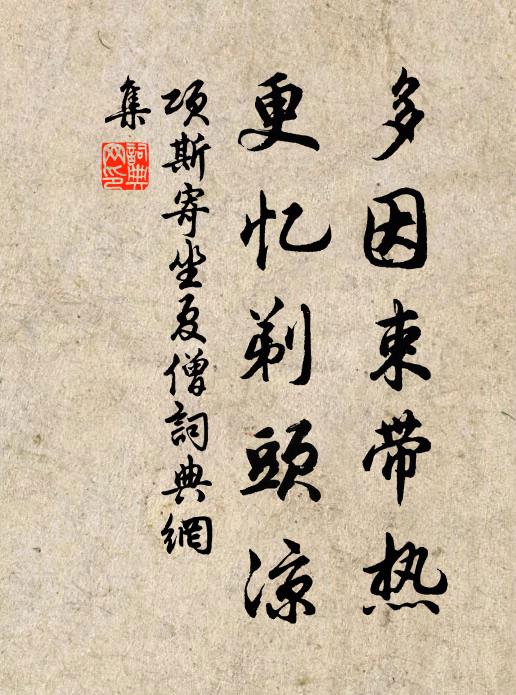 多因束带热
更忆剃头凉
项斯寄坐夏僧詞典網
集
詞典
网印